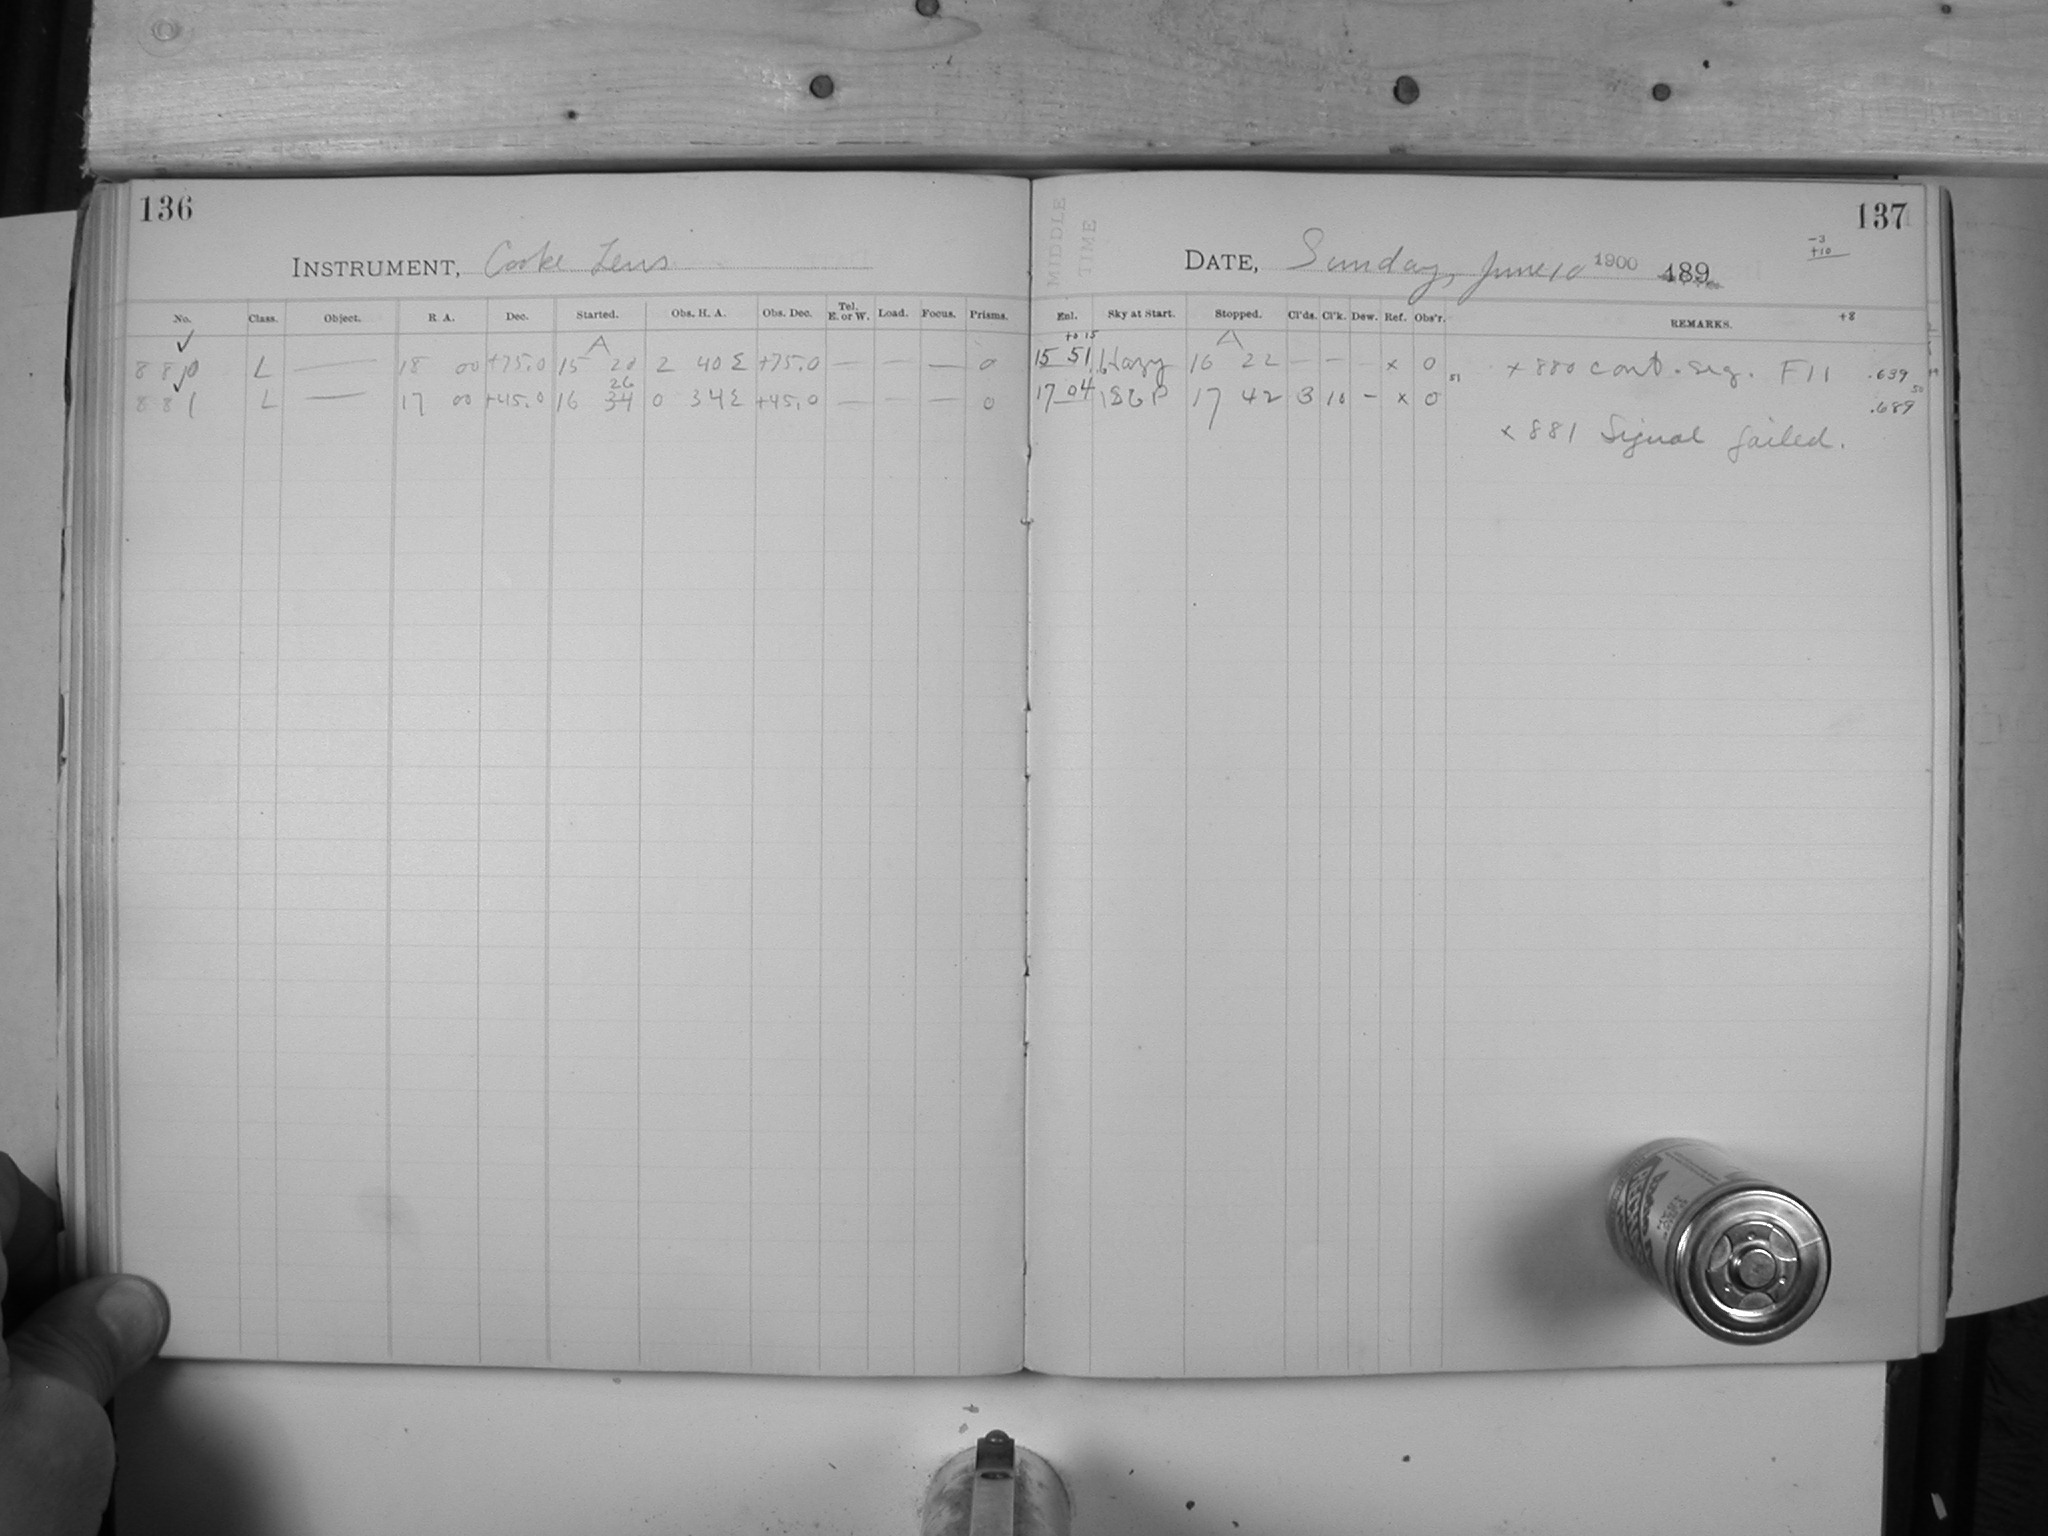 136
INSTRUMENT, Cooke Lens
No. Class. Object. R. A. Dec. Started. Obs. H. A. Obs. Dec. Tel. E. or W. Load. Focus. Prisms.
A
880 L — 18 00 +75.0 15 20 2 40 E +75.0 — — — 0
26
881 L — 17 00 +45.0 16 34 0 34 E +45.0 — — — 0
137
-3
+10
MIDDLE
TIME
DATE, Sunday, June 10 1900 189
Enl. Sky at Start. Stopped. Cl'ds. Cl'k. Dew. Ref. Obs'r. REMARKS. +8
+0 15 A
15 51 Hazy 16 22 — — — x 0 x 880 cont. seg. F11 .639
51 50
17 04 17 42 3 10 – x 0 .689
x 881 Signal failed.